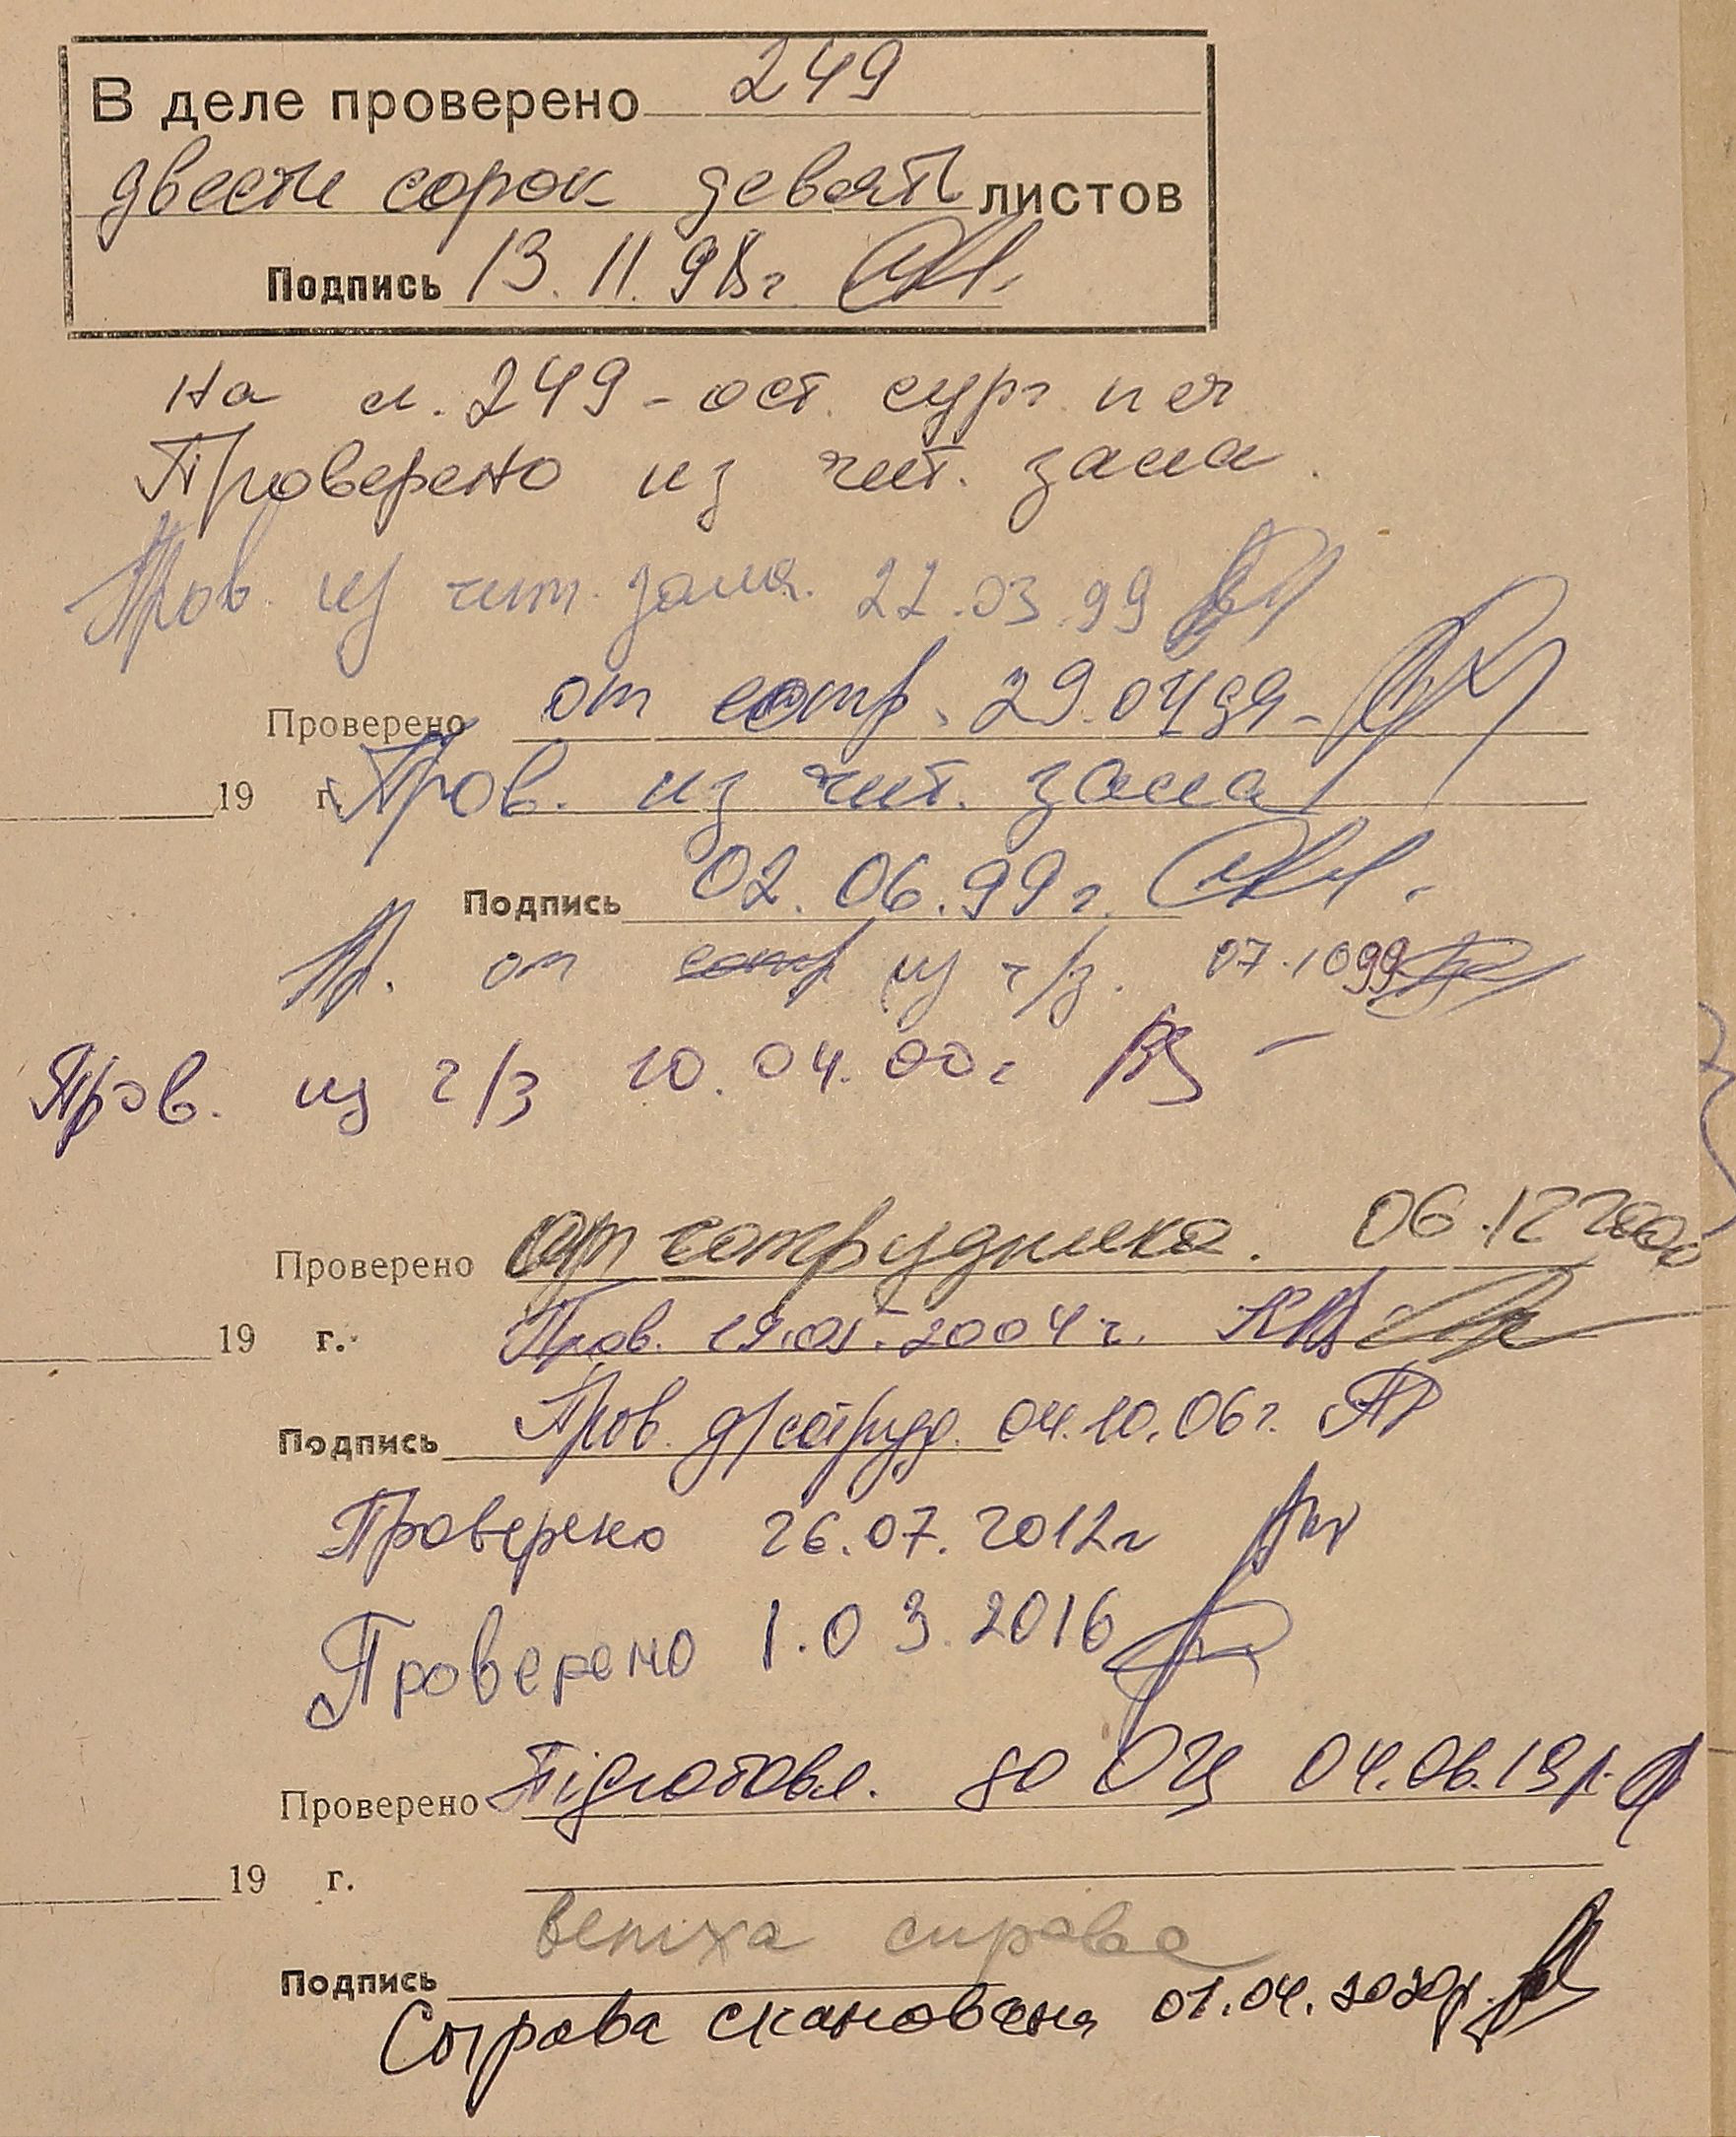 В деле проверено 249
двести сорок девять листов
Подпись 13.11.98г
На л. 249 - ост. сург. печ
Проверено из чит. зала.
Пров из чит. зала. 22.03.99
Проверено от сотр. 29.04 99
19 г. Пров. из чит. зала
Подпись 02.06.99г.
Пр. от сотр из ч/з. 07.10 99
Пров. из ч/з 10.04.00г
Проверено от сотрудника. 06.12 2000
19 г. Пров. 19.05.2004г.
Подпись Пров. д/сотруд. 04.10.06г.
Проверено 26.07.2012г
Проверено 1.03.2016
Проверено Підготовл. до ОЦ 04.06.19р.
19 г.
ветха справа
Подпись
Справа сканована 01.04.2020р.